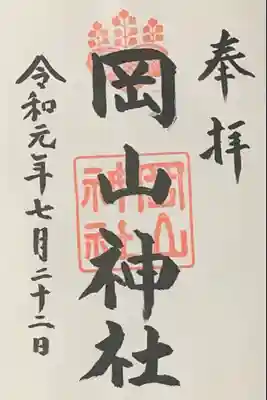 奉拝
岡山神社
岡山
神社
令和元年七月二十二日